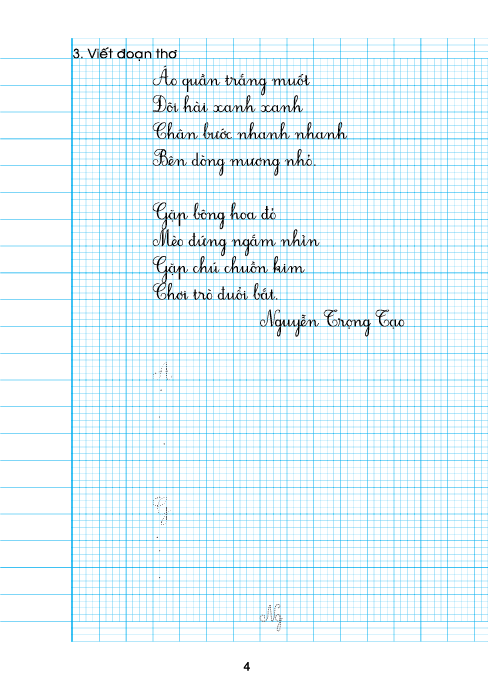 3. Viết đoạn thơ
Áo quần trắng muốt
Đôi hài xanh xanh
Chân bước nhanh nhanh
Bên dòng mương nhỏ.
Gặp bông hoa đỏ
Mèo đứng ngắm nhìn
Gặp chú chuồn kim
Chơi trò đuổi bắt.
Nguyễn Trọng Tạo
A
G
Ng
4